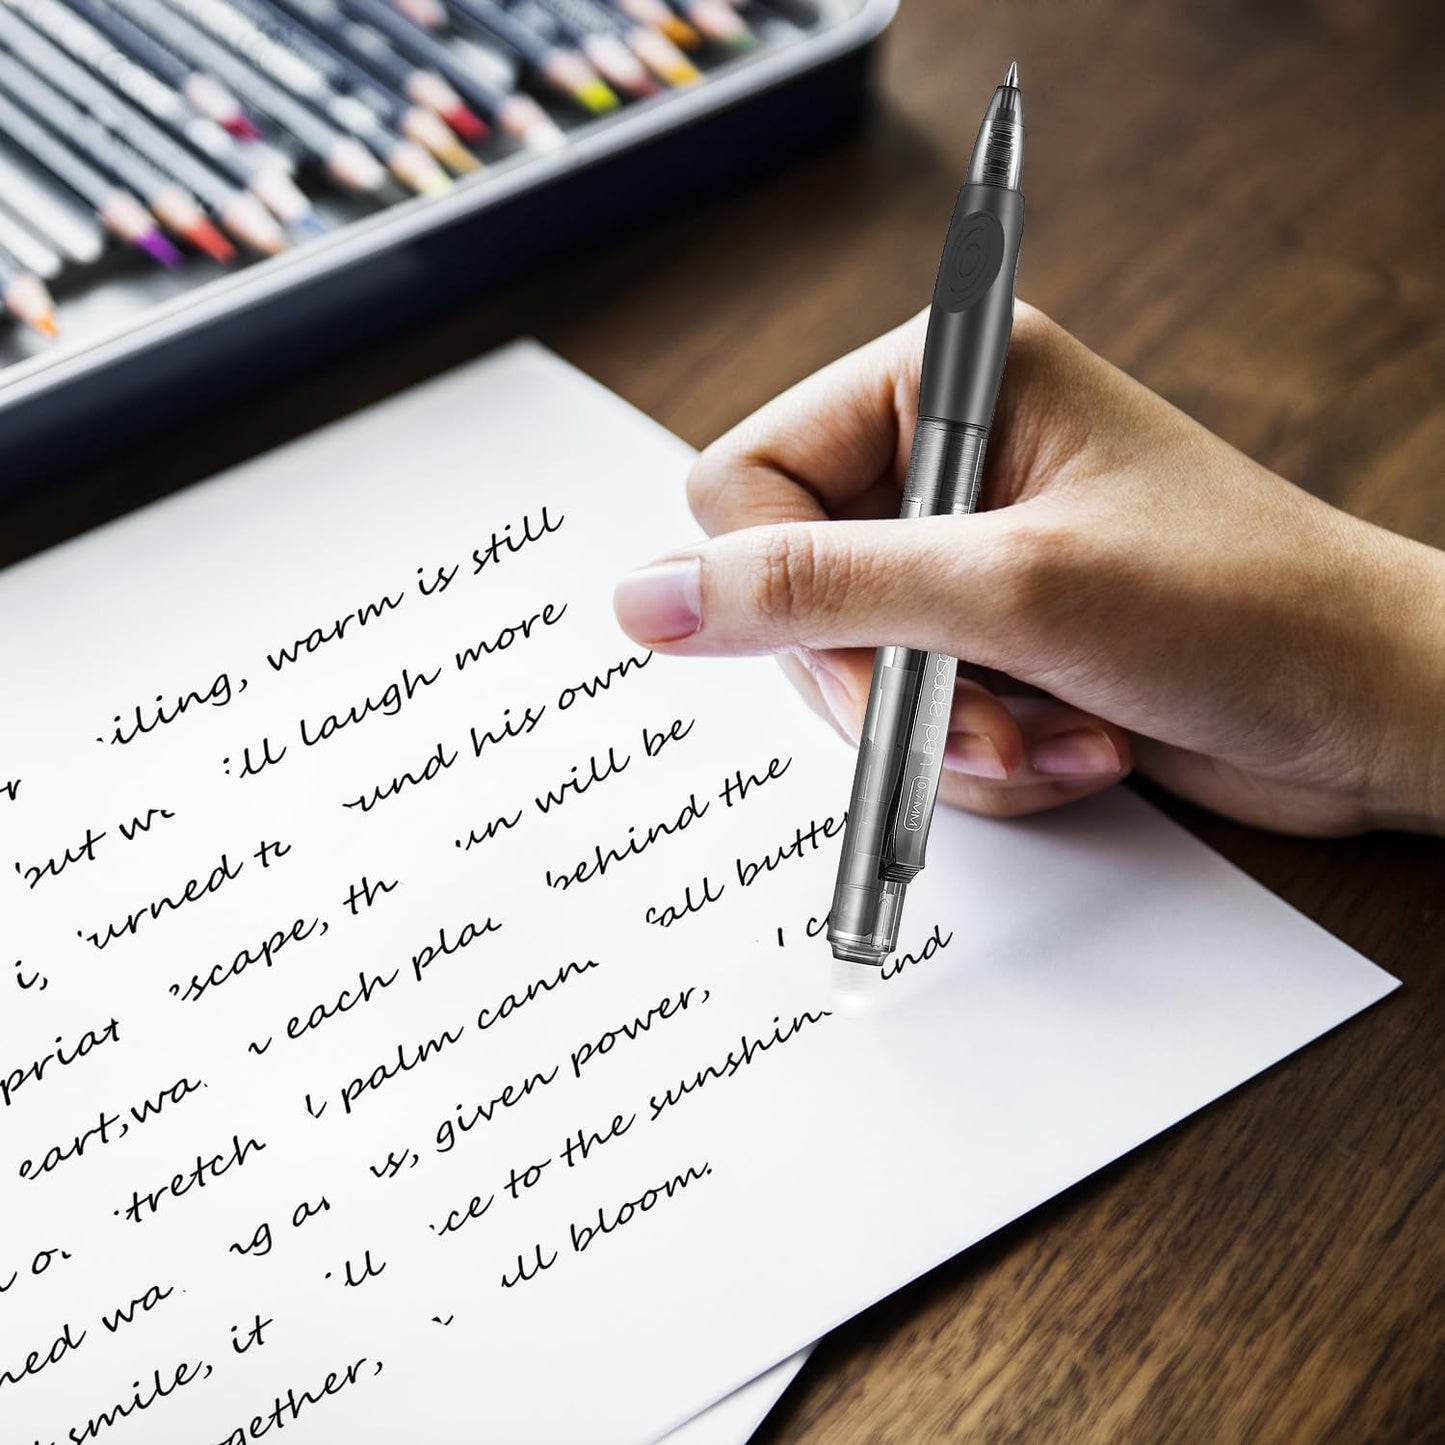 iling, warm is still
but w ll laugh more
i, urned t und his own
priat scape, th un will be
eart,wa each pla behind the
o tretch palm cann all butte
ned wa g a s, given power, I c
smile, it ll ce to the sunshin ind
gether, ll bloom.
sable pen 0.7MM